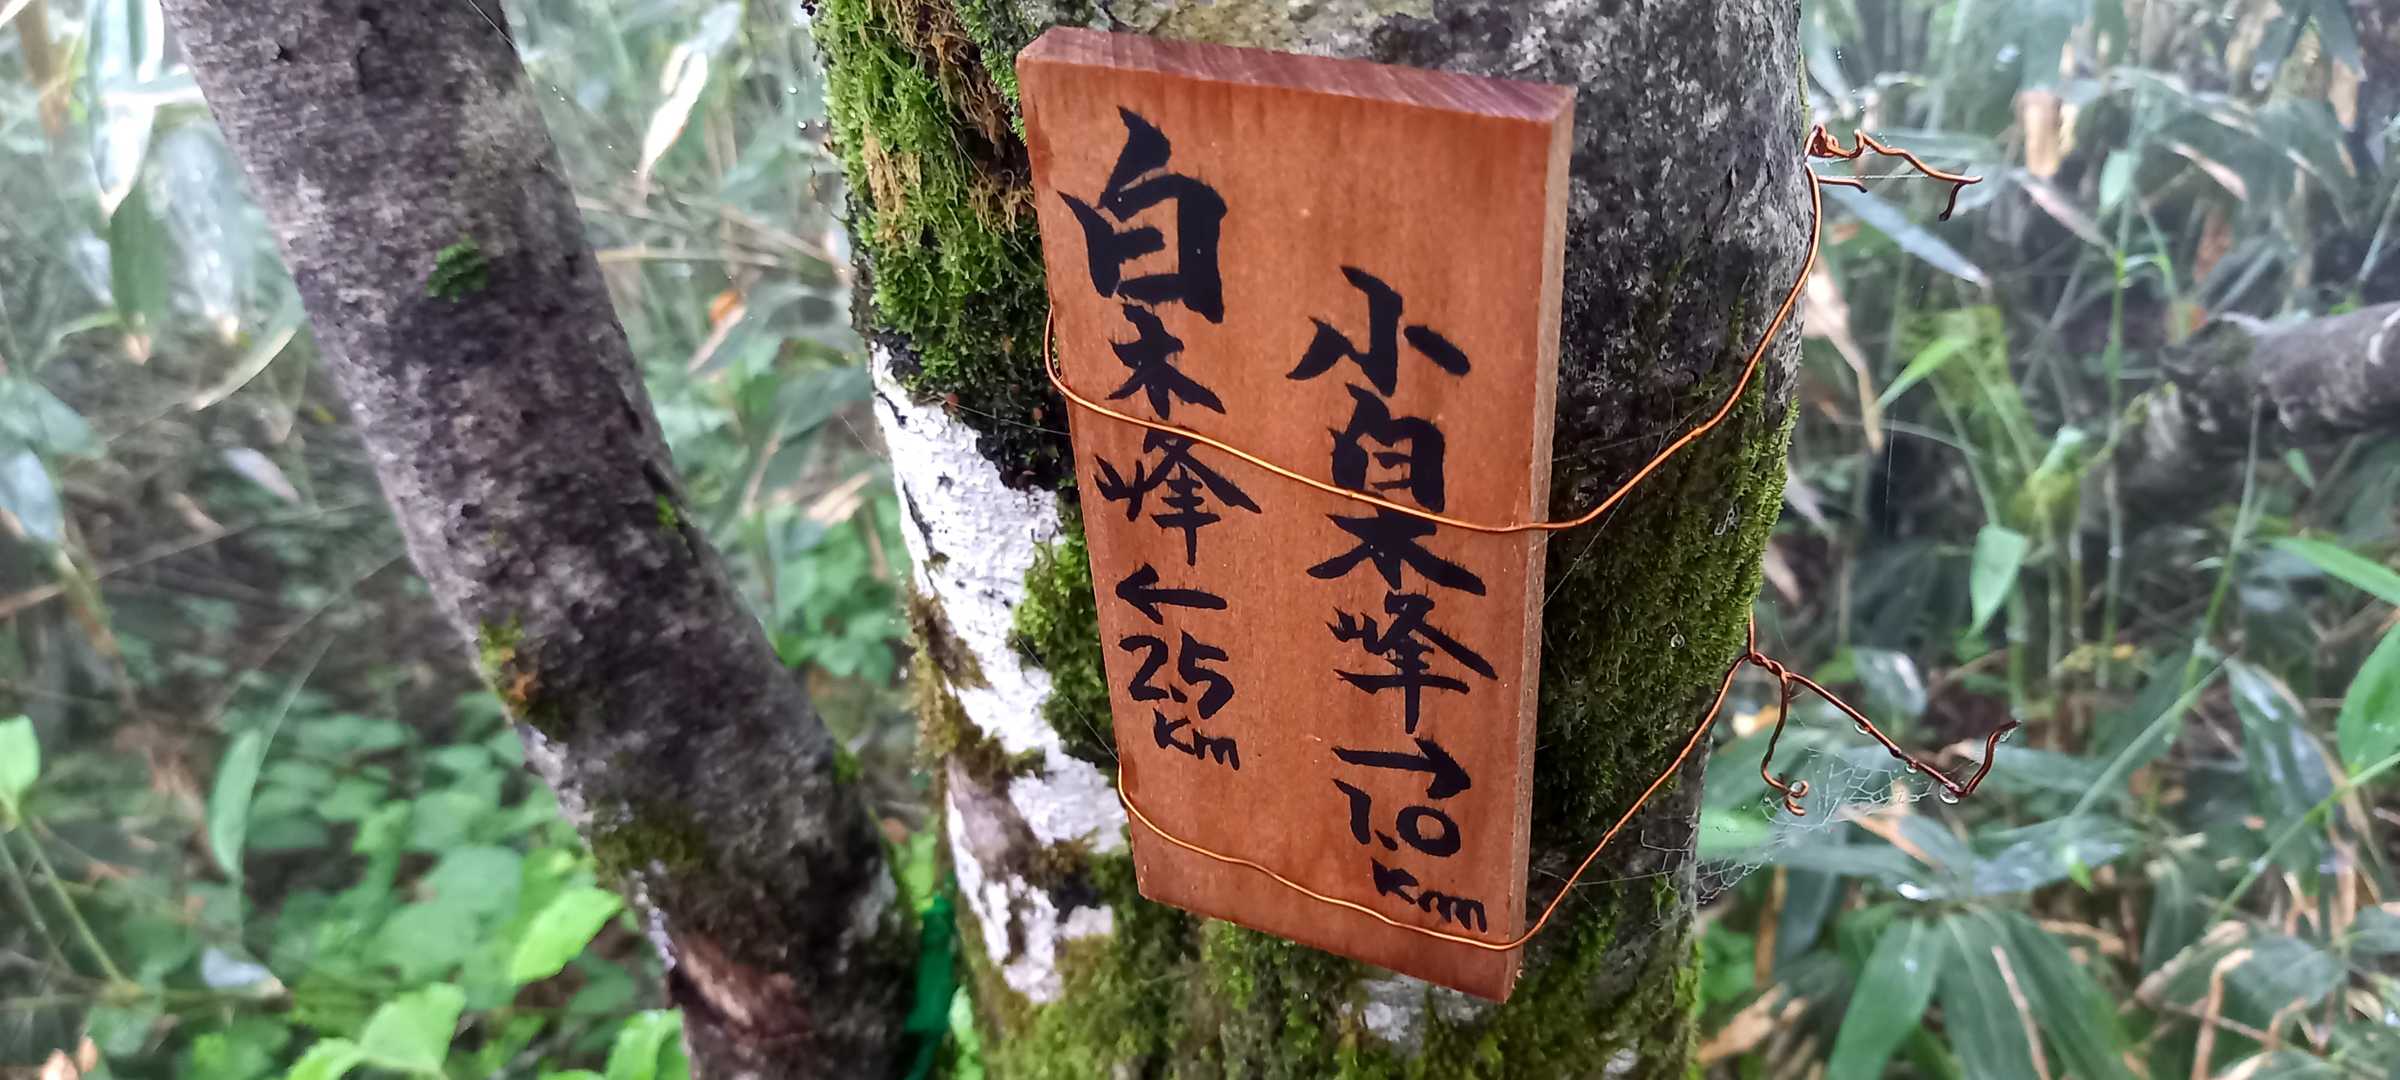 小白木峰→1.0km
白木峰←2.5km